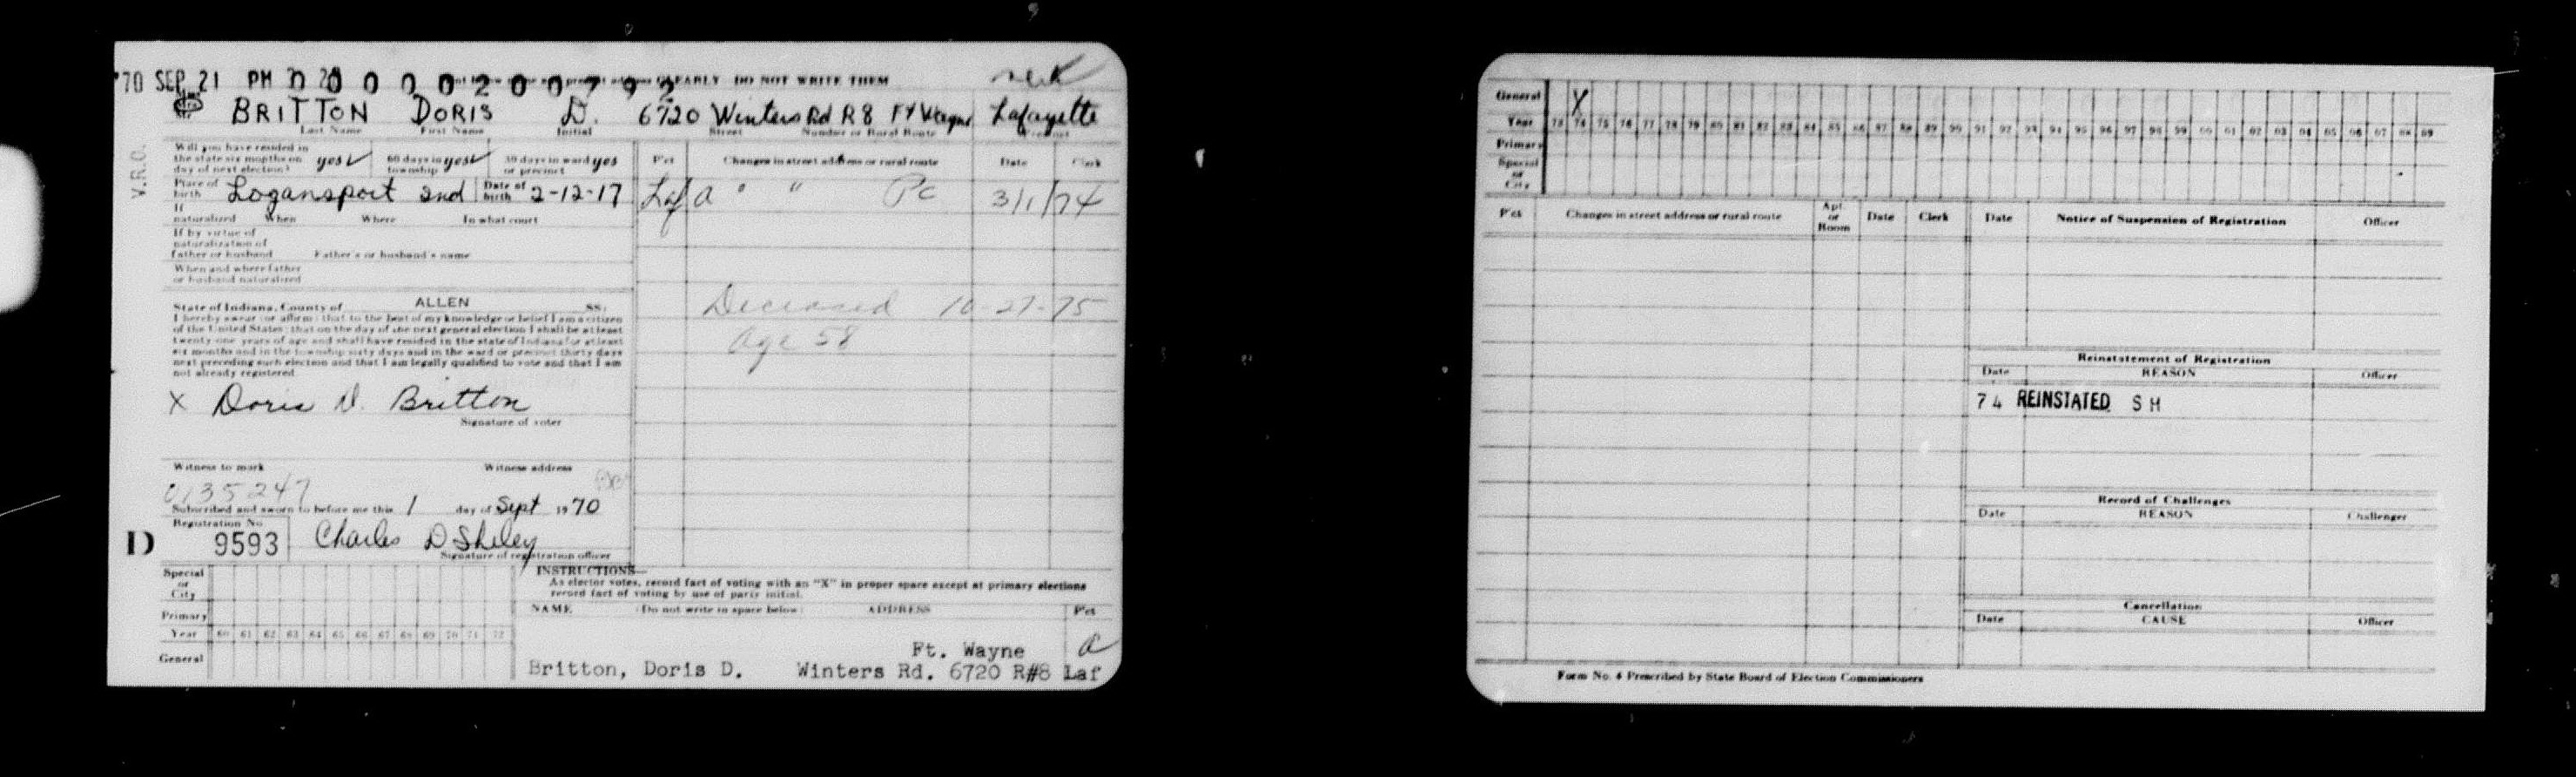 '70 SEP 21 PM 0 0 0 0 0 2 0 0 7 9 2 CLEARLY DO NOT WRITE THEM
BRITTON DORIS D. 6720 Winters Rd R 8 Ft Wayne Lafayette
Last Name First Name Initial Street Number or Rural Route Precinct
V.R.O.
Will you have resided in
the state six months on yes 60 days in yes 30 days in ward yes
day of next election? township or precinct
P'ct Changes in street address or rural route Date Clerk
Place of birth Logansport Ind Date of birth 2-12-17 Laf a " " Pc 3/1/74
If
naturalized When Where In what court
If by virtue of
naturalization of
father or husband Father's or husband's name
When and where father
or husband naturalized
State of Indiana, County of ALLEN SS:
I hereby swear (or affirm) that to the best of my knowledge or belief I am a citizen
of the United States; that on the day of the next general election I shall be at least
twenty-one years of age and shall have resided in the state of Indiana for at least
six months and in the township sixty days and in the ward or precinct thirty days
next preceding such election and that I am legally qualified to vote and that I am
not already registered
Deceased 10-27-75
Age 58
X Doris D. Britton
Signature of voter
Witness to mark Witness address
0135247
Subscribed and sworn to before me this 1 day of Sept 1970
Registration No
D 9593 Charles D Sheley
Signature of registration officer
Special
or
City
Primary
Year 60 61 62 63 64 65 66 67 68 69 70 71 72
General
INSTRUCTIONS
As elector votes, record fact of voting with an "X" in proper space except at primary elections
record fact of voting by use of party initial.
NAME (Do not write in space below) ADDRESS P'ct
Ft. Wayne a
Britton, Doris D. Winters Rd. 6720 R#8 Laf
General X
Year 73 74 75 76 77 78 79 80 81 82 83 84 85 86 87 88 89 90 91 92 93 94 95 96 97 98 99 00 01 02 03 04 05 06 07 08 09
Primary
Special
or
City
P'ct Changes in street address or rural route Apt. or Room Date Clerk Date Notice of Suspension of Registration Officer
Reinstatement of Registration
Date REASON Officer
74 REINSTATED SH
Record of Challenges
Date REASON Challenger
Cancellation
Date CAUSE Officer
Form No. 4 Prescribed by State Board of Election Commissioners